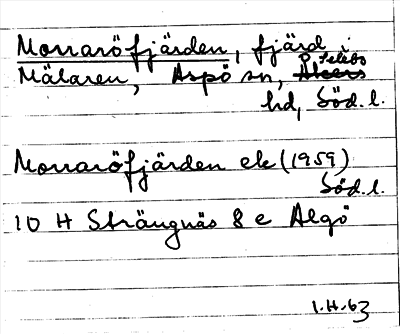 Morraröfjärden, fjärd i
Mälaren, Aspö sn, Selebo
hd, Söd. l.
Morraröfjärden ek (1959)
Söd. l.
10 H Strängnäs 8 e Algö
1.H.63